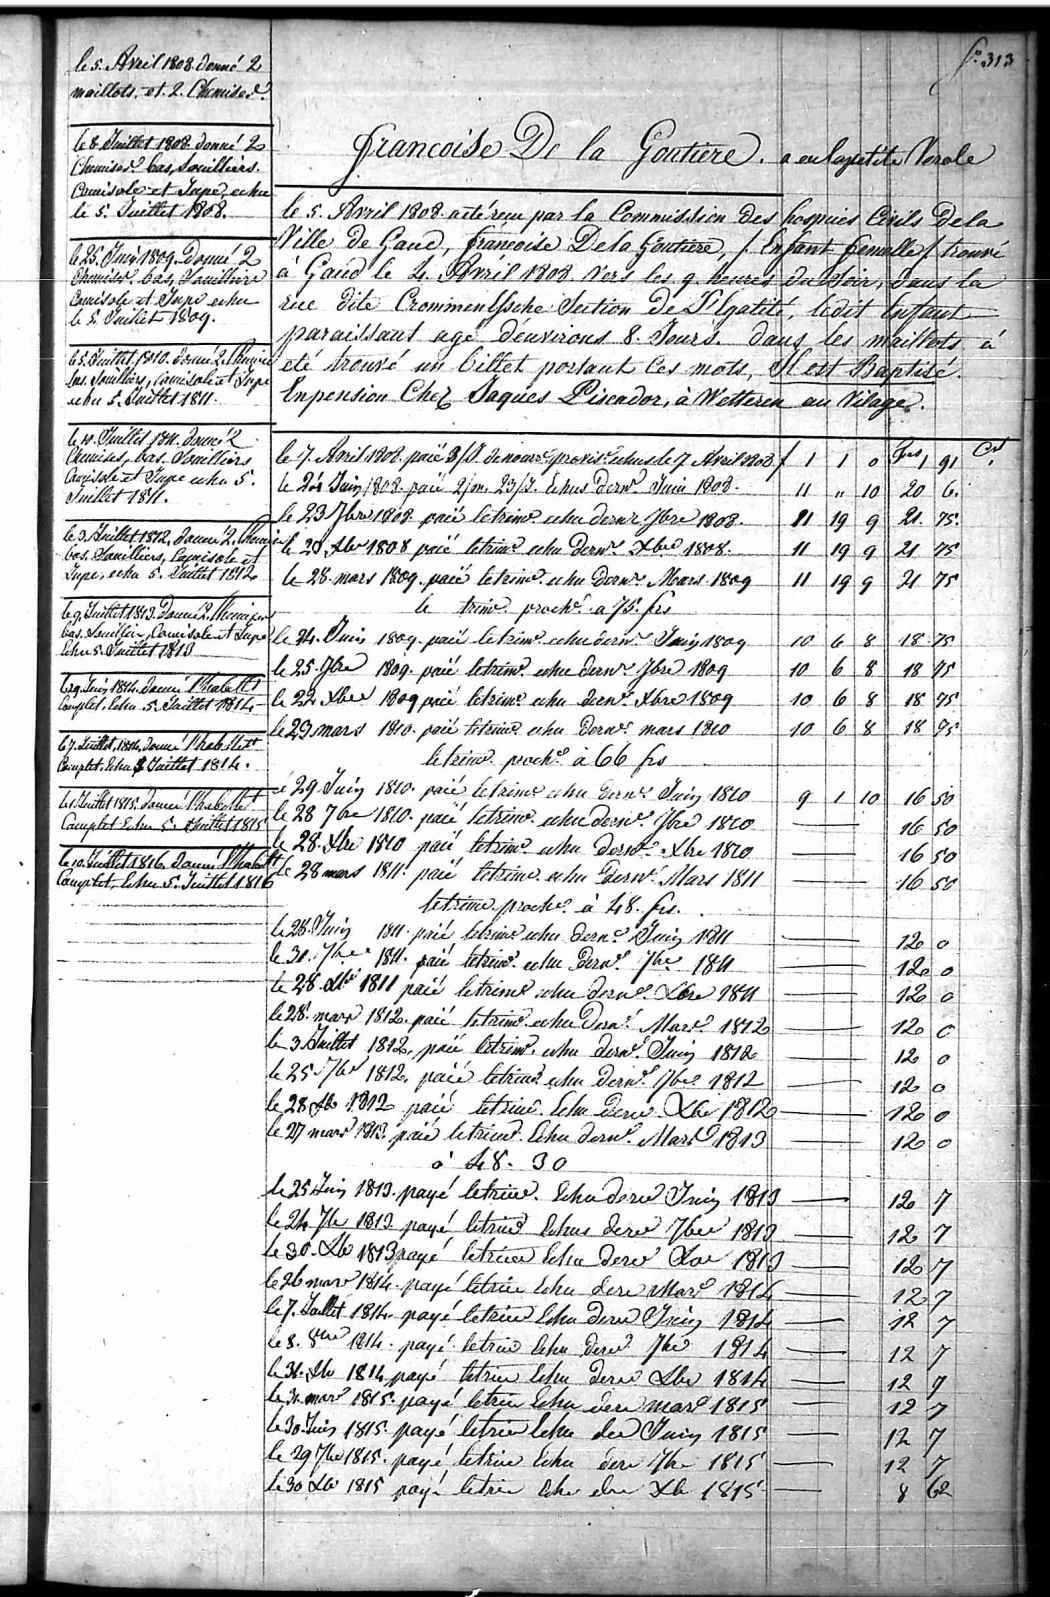 fo. 313
le 5. Avril 1808. donné 2
maillots. et. 2. Chemises.
le 8. Juillet 1808. donné 2
Chemises. bas, Souilliers.
Camisole et Jupe, echu
le 5. Juillet 1808.
le 25. Juin 1809. Donné 2
Chemises. bas, Souilliers
Camisole et Jupe echu
le 5. Juillet 1809.
le 5. Juillet, 1810. donné 2. Chemises
bas. Souilliers, Camisole et Jupe
echu 5. Juillet 1811.
le 11. Juillet 1811. donné 2
Chemises, bas. Souilliers
Camisole et Jupe echu 5.
Juillet 1811.
le 3. Juillet 1812, donné 2. Chemises
bas. Souilliers, Camisole et
Jupe, echu 5. Juillet 1812
le 9. Juillet 1813. Donné 2. Chemises
bas. Souilliers, Camisole et Jupe
Echu 5. Juillet 1813
le 29. Juin 1814. donné l'habillt
Complet. Echu 5. Juillet 1814.
le 7. Juillet, 1814, donné l'habillt
Complet. Echu 5 Juillet 1814.
le 1. Juillet 1815. donné l'habillt
Complet Echu 5. Juillet 1815
le 10. Juillet 1816. donné l'habillt
Complet. Echu 5. Juillet 1816
francoise De la Goutiere. a eu la petite Verole
le 5. Avril 1808. a été reçu par la Commission des hospices Civils De la
Ville de Gand, françoise De la Goutiere, / Enfant femelle / trouvé
à Gand le 4. Avril 1808 vers les 9. heures du Soir, dans la
rue dite Crommenessche Section De L'Egalité, ledit Enfant
paraissant agé d'environs 8. Jours. dans les maillots à
eté trouvé un billet portant ces mots, Il est Baptisé.
En pension Chez Jaques Piscador, à Wetteren au Village.
frs Cs
le 7. Avril 1808. paié 3/J. de nourre. provise. echus le 7 Avril 1808. f 1 1 0 1 91
le 24 Juin 1808. paié 2/m. 23/J. echus dernr. Juin 1808. 11 " 10 20 6.
le 23 7bre 1808 paié le trime. echu dernr 7bre 1808. 11 19 9 21. 75.
le 20. Xbre 1808 paié le trime. echu dernr. Xbre 1808. 11 19 9 21 75
le 28. mars 1809. paié le trime. echu dernr. Mars 1809 11 19 9 21 75
le trime. proche. a 75. frs
le 24. Juin 1809. paié le trime. echu dernr. Juin 1809 10 6 8 18 75
le 25. 7bre 1809. paié le trime. echu dernr. 7bre 1809 10 6 8 18 75
le 22 Xbre 1809 paié le trime. echu dernr. Xbre 1809 10 6 8 18 75
le 29 mars 1810. paié le trime. echu dernr. mars 1810 10 6 8 18 75
le trime. proche. à 66 frs
le 29. Juin 1810. paié le trime echu dernr. Juin 1810 9 1 10 16 50
le 28 7bre 1810. paié le trime. echu dernr. 7bre 1810 16 50
le 28. Xbre 1810 paié le trime. echu dernr. Xbre 1810 16 50
le 28 mars 1811. paié le trime. echu dernr. Mars 1811 16 50
le trime. proche. à 48. frs.
le 28. Juin 1811. paié le trime echu dernr. Juin 1811 12 0
le 30. 7bre 1811. paié le trime. echu dernr. 7bre 1811 12 0
le 28 Xbre 1811 paié le trime echu dernr. Xbre 1811 12 0
le 28. mars 1812. paié le trime. echu dernr. Mars. 1812 12 0
le 3. Juillet 1812, paié le trime. echu dernr. Juin 1812 12 0
le 25. 7bre 1812, paié le trime. echu dernr. 7bre 1812 12 0
le 28 Xbre 1812 paié le trime. Echu dernr. Xbre 1812 12 0
le 27 mars 1813. paié le trime. Echu dernr. Mars 1813 12 0
à 48. 30
le 25 Juin 1813. payé le trime. Echu dernr Juin 1813 12 7
le 24 7bre 1813 payé le trime Echus dernr 7bre 1813 12 7
le 30. Xbre 1813 payé le trime Echu dernr Xbre 1813 12 7
le 26 mars 1814. payé le trime Echu dernr Mars 1814 12 7
le 7. Juillet 1814. payé le trime Echu dernr Juin 1814 12 7
le 8. 8bre 1814. payé le trime Echu dernr 7bre 1814 12 7
le 31. Xbre 1814 payé le trime Echu dernr Xbre 1814 12 7
le 31. mars 1815. payé le trime Echu dernr mars 1815 12 7
le 30. Juin 1815. payé le trime Echu der Juin 1815 12 7
le 29 7bre 1815. payé le trime Echu dern 7bre 1815 12 7
le 30 Xbre 1815 payé le trime Echu dern Xbre 1815 8 62